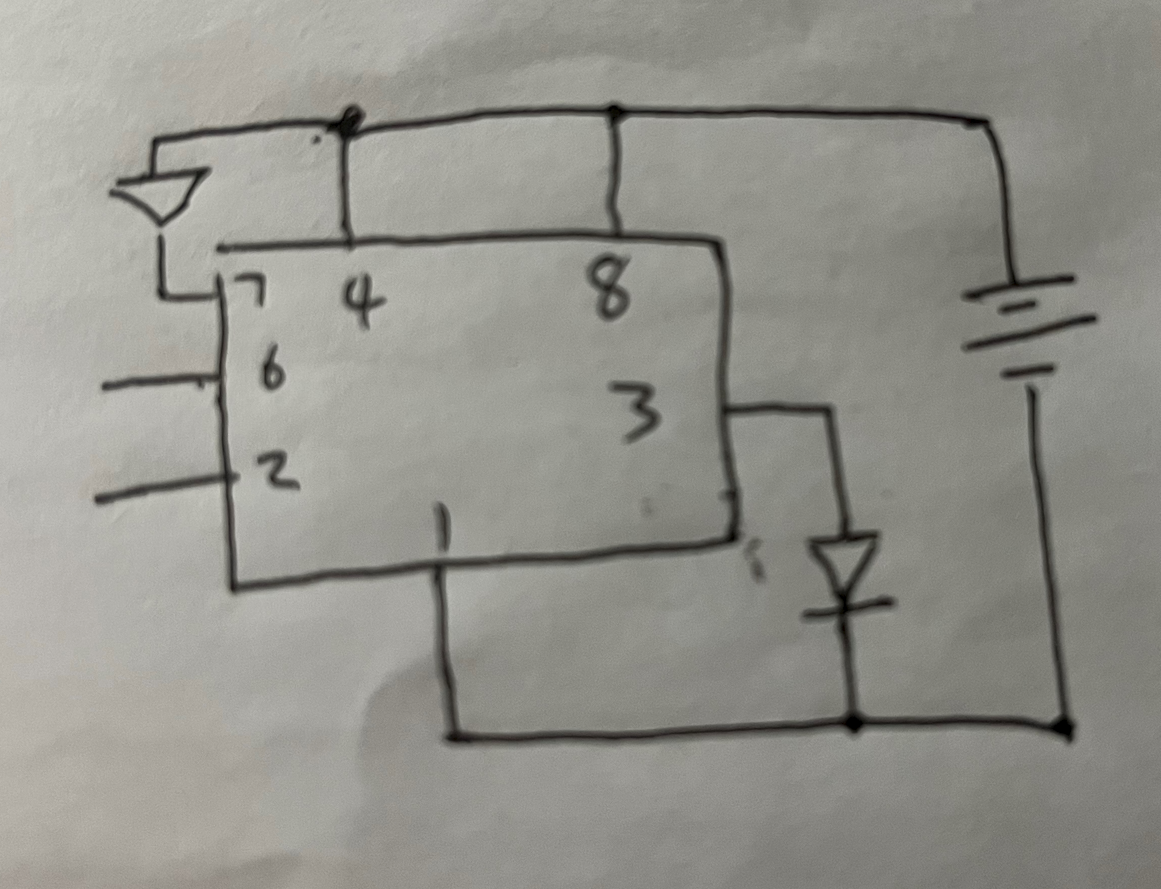 7 4 8
6
3
2
1